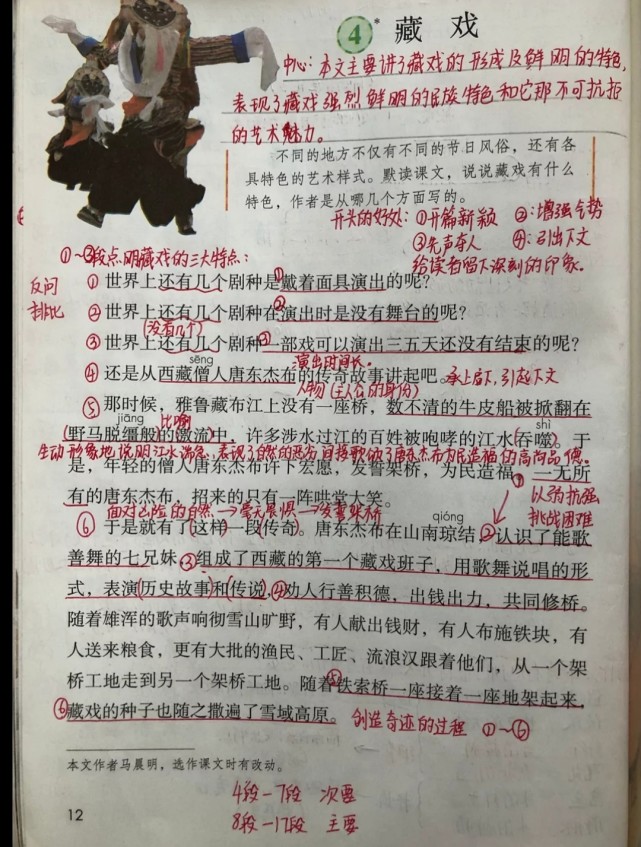 ④* 藏 戏
中心：本文主要讲了藏戏的形成及鲜明的特色，
表现了藏戏强烈鲜明的民族特色和它那不可抗拒
的艺术魅力。
不同的地方不仅有不同的节日风俗，还有各
具特色的艺术样式。默读课文，说说藏戏有什么
特色，作者是从哪几个方面写的。
开头的好处：①开篇新颖 ②：增强气势
③先声夺人 ④：引出下文
给读者留下深刻的印象。
①~③段点明藏戏的三大特点：
反问
排比
① 世界上还有几个剧种是戴着面具演出的呢？
② 世界上还有几个剧种在演出时是没有舞台的呢？
（没有几个）
③ 世界上还有几个剧种一部戏可以演出三五天还没有结束的呢？
演出时间长。
sēng
④ 还是从西藏僧人唐东杰布的传奇故事讲起吧。承上启下，引起下文
人物（主人公的身份）
⑤ 那时候，雅鲁藏布江上没有一座桥，数不清的牛皮船被掀翻在
jiāng 比喻 shì
（野马脱缰般）的激流中，许多涉水过江的百姓被咆哮的江水（吞噬）。于
生动形象地说明江水湍急，表现了自然的恶劣 间接歌颂了唐东杰布为民造福的高尚品德。
是，年轻的僧人唐东杰布许下宏愿，发誓架桥，为民造福。①一无所
有的唐东杰布，招来的只有一阵哄堂大笑。
以弱抗强
挑战困难
面对凶险的自然→毫无畏惧→发誓架桥
qióng
⑥ 于是就有了（这样）一段（传奇）。唐东杰布在山南琼结②认识了能歌
善舞的七兄妹，③组成了西藏的第一个藏戏班子，用歌舞说唱的形
式，表演（历史故事）和（传说），④劝人行善积德，出钱出力，共同修桥。
随着雄浑的歌声响彻雪山旷野，有人献出钱财，有人布施铁块，有
人送来粮食，更有大批的渔民、工匠、流浪汉跟着他们，从一个架
桥工地走到另一个架桥工地。随着⑤铁索桥一座接着一座地架起来，
⑥藏戏的种子也随之撒遍了雪域高原。 创造奇迹的过程 ①~⑥
本文作者马晨明，选作课文时有改动。
4段—7段 次要
8段—17段 主要
12